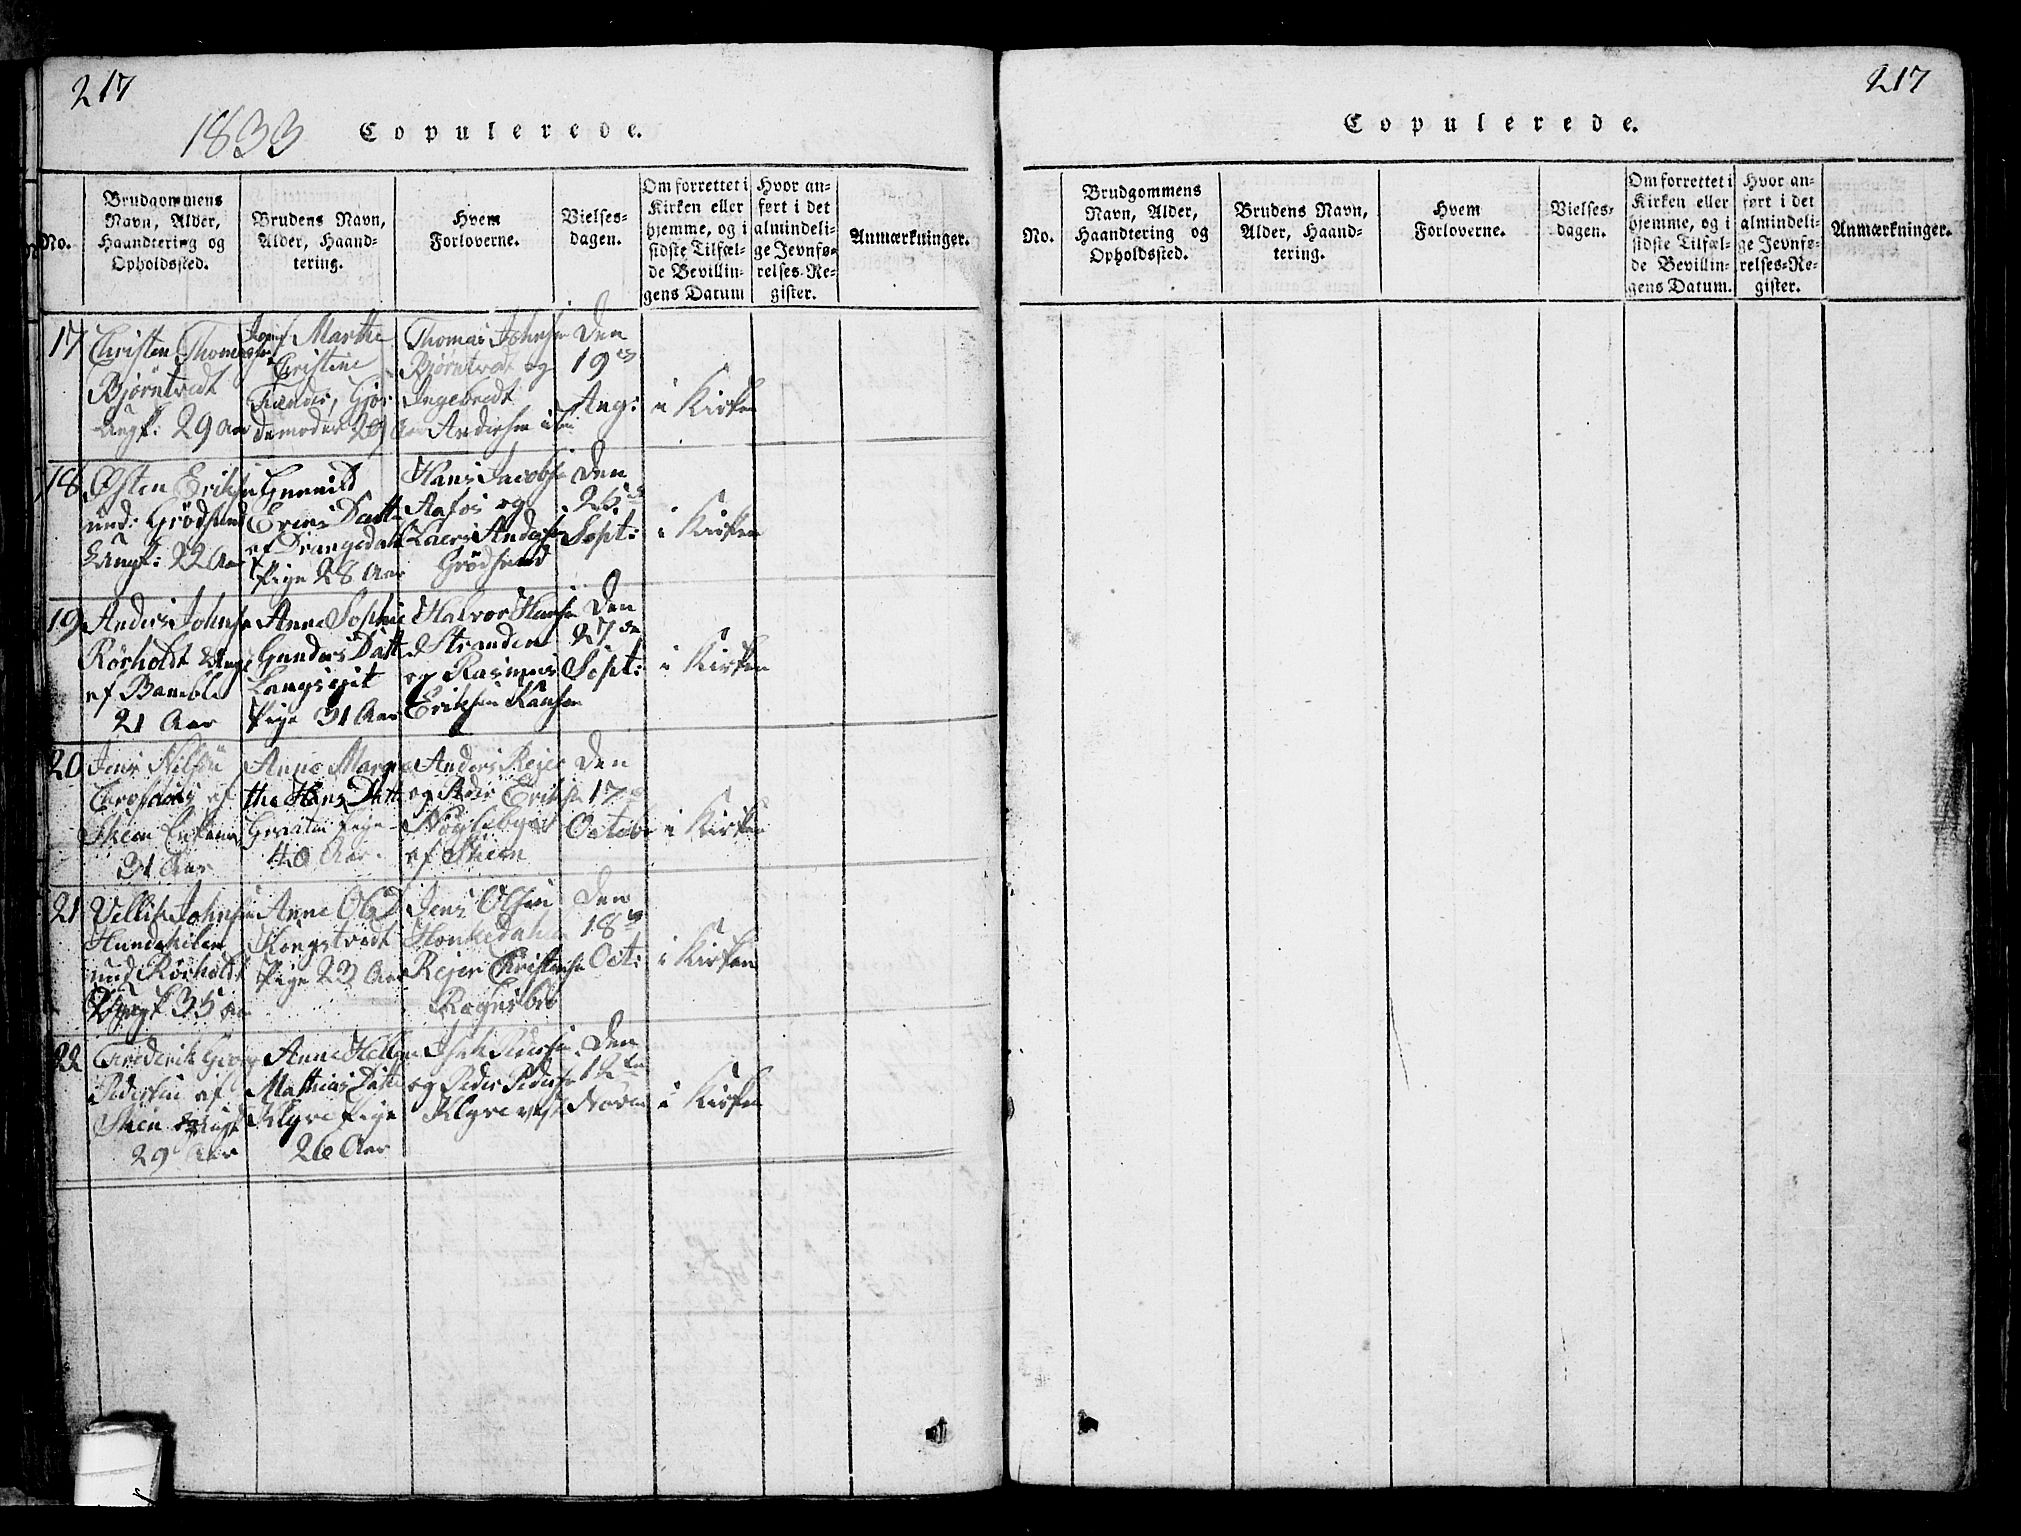 217
1833 Copulerede.
No.
Brudgommens
Navn, Alder,
Haandtering og
Opholdssted.
Brudens Navn,
Alder, Haand-
tering.
Hvem
Forloverne.
Vielses-
dagen.
Om forrettet i
Kirken eller
hjemme, og i
sidste Tilfæl-
de Bevillin-
gens Datum
Hvor an-
ført i det
almindeli-
ge Jevnfø-
relses-Re-
gister.
Anmærkninger.
17
Christen
Bjørntvedt
Ungk: 29 Aar
Marthe
Christine
29
Thomas Johnsen
Bjørntved og
Ingebredt
Andersen
Den
19
Aug:
i Kirken
18
Østen Eriks
und: Grødsund
Ungk: 22 Aar
Gunnild
Datt
af Drangedahl
Pige 28 Aar
Hans Jacobsen
Aafos og
Laers Anders
Grødsund
Den
26
Sept:
i Kirken
19
Anders Johns
Rørholdt Ung
af Bamble
21 Aar
Anne Sophie
Gunders Datt
Langsigit
Pige 31 Aar
Halvor Hansen
Stranden
og Rasmus
Eriksen
Den
27
Sept:
i Kirken
20
Jens Nilsen
af
Skien Enkem
31 Aar
Anne Margre
the Hans Datt
Pige
40 Aar.
Anders Rejer
og Peder Eriks
af Skien
Den
17
October
i Kirken
21
Johnsen
Hundskilen
und Rørholdt
Ungk 35 Aar
Anne Ols D
Kongstvedt
Pige 23 Aar
Jens Olsen
Rejer Christensen
Den
18
Oct:
i Kirken
22
Frederik Georg
Pedersen af
Skien Ungk
29 Aar
Anne Helle
Mathias Datt
Klyve Pige
26 Aar
Isak Pedersen
og Peder Peders
Klyve
Den
12
Novem
i Kirken
217
Copulerede.
No.
Brudgommens
Navn, Alder,
Haandtering og
Opholdssted.
Brudens Navn,
Alder, Haand-
tering.
Hvem
Forloverne.
Vielses-
dagen.
Om forrettet i
Kirken eller
hjemme, og i
sidste Tilfæl-
de Bevillin-
gens Datum.
Hvor an-
ført i det
almindeli-
ge Jevnfø-
relses-Re-
gister.
Anmærkninger.